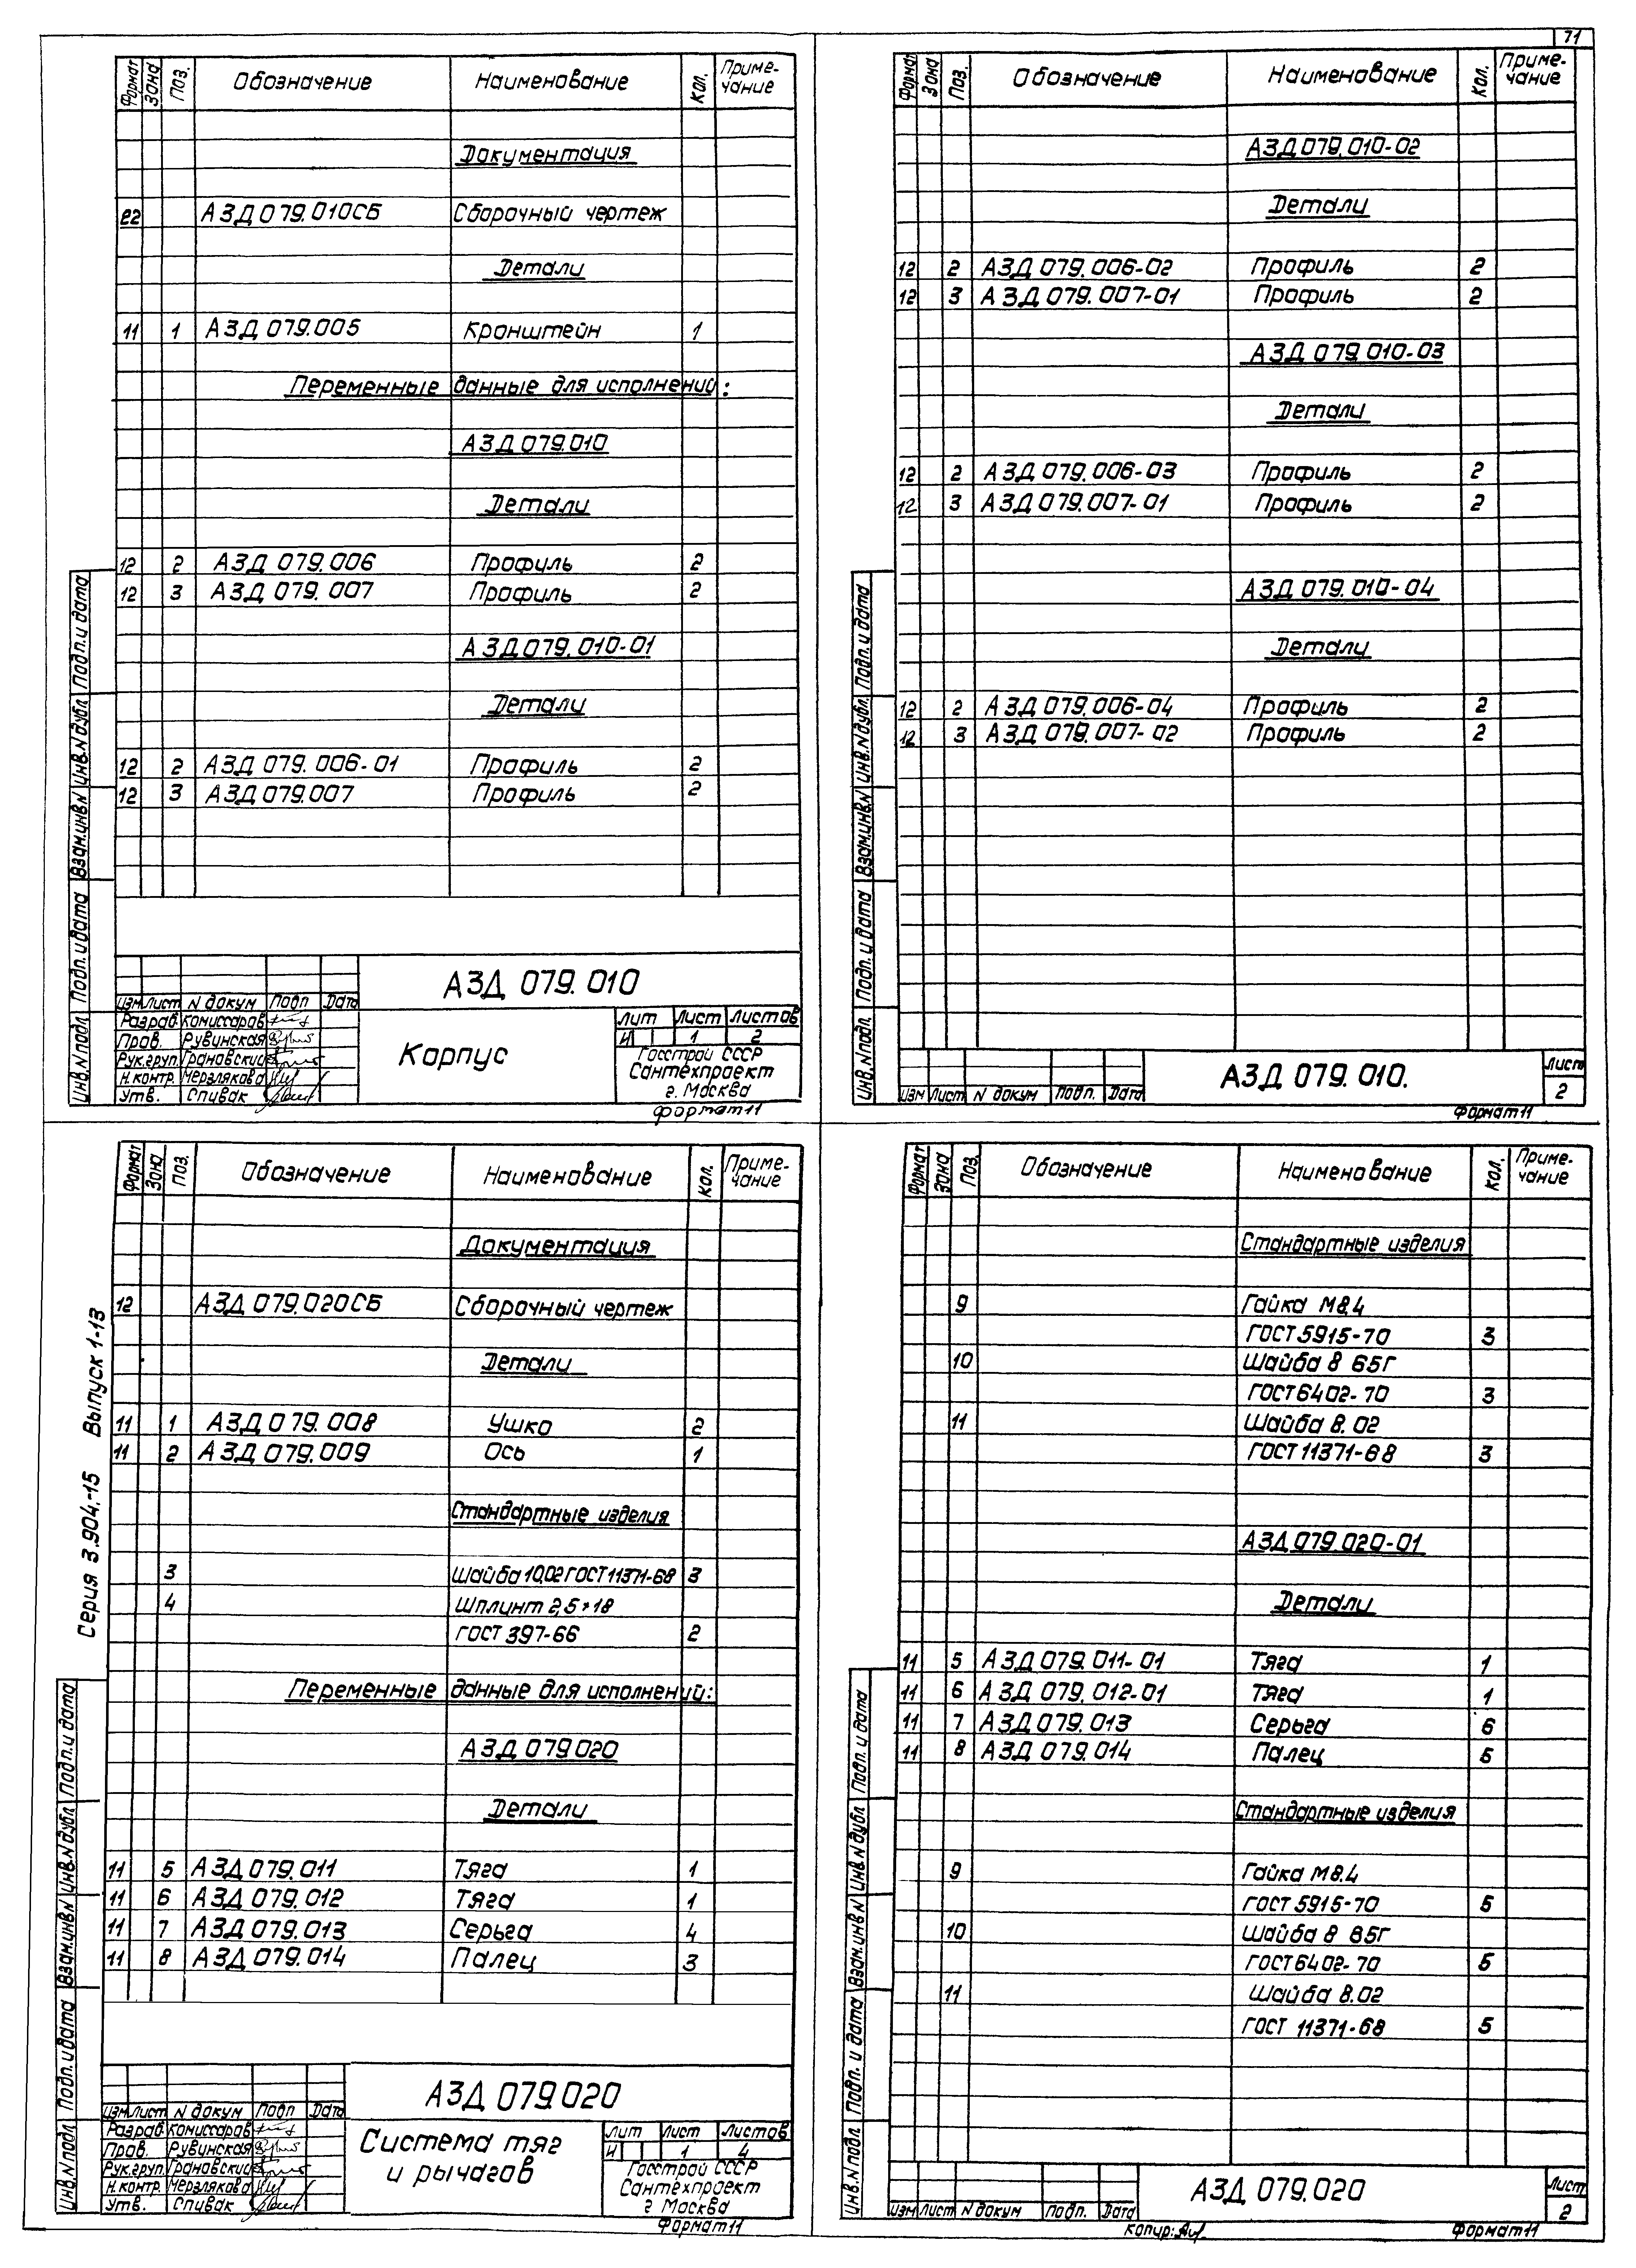 71
Формат Зона Поз. Обозначение Наименование Кол. Приме-
чание
Документация
22 АЗД 079.010СБ Сборочный чертеж
Детали
11 1 АЗД 079.005 Кронштейн 1
Переменные данные для исполнений:
АЗД 079.010
Детали
12 2 АЗД 079.006 Профиль 2
12 3 АЗД 079.007 Профиль 2
АЗД 079.010-01
Детали
12 2 АЗД 079.006-01 Профиль 2
12 3 АЗД 079.007 Профиль 2
Инв.N подл. Подп. и дата Взам.инв.N Инв.N дубл. Подп. и дата
АЗД 079.010
Изм Лист N докум Подп Дата
Разраб. Комиссаров
Пров. Рувинская
Рук.груп. Грановский
Н.контр. Мерзлякова
Утв. Спивак
Корпус
Лит Лист Листов
И 1 2
Госстрой СССР
Сантехпроект
г. Москва
Формат 11
Формат Зона Поз. Обозначение Наименование Кол. Приме-
чание
АЗД 079.010-02
Детали
12 2 АЗД 079.006-02 Профиль 2
12 3 АЗД 079.007-01 Профиль 2
АЗД 079.010-03
Детали
12 2 АЗД 079.006-03 Профиль 2
12 3 АЗД 079.007-01 Профиль 2
АЗД 079.010-04
Детали
12 2 АЗД 079.006-04 Профиль 2
12 3 АЗД 079.007-02 Профиль 2
Инв.N подл. Подп. и дата Взам.инв.N Инв.N дубл. Подп. и дата
Изм Лист N докум Подп. Дата
АЗД 079.010.
Лист
2
Формат 11
Серия 3.904.-15 Выпуск 1-13
Формат Зона Поз. Обозначение Наименование Кол. Приме-
чание
Документация
12 АЗД 079.020СБ Сборочный чертеж
Детали
11 1 АЗД 079.008 Ушко 2
11 2 АЗД 079.009 Ось 1
Стандартные изделия
3 Шайба 10.02 ГОСТ 11371-68 3
4 Шплинт 2,5×18
ГОСТ 397-66 2
Переменные данные для исполнений:
АЗД 079.020
Детали
11 5 АЗД 079.011 Тяга 1
11 6 АЗД 079.012 Тяга 1
11 7 АЗД 079.013 Серьга 4
11 8 АЗД 079.014 Палец 3
Инв.N подл Подп. и дата Взам.инв.N Инв.N дубл. Подп. и дата
АЗД 079.020
Изм Лист N докум Подп Дата
Разраб. Комиссаров
Пров. Рувинская
Рук.груп. Грановский
Н.контр. Мерзлякова
Утв. Спивак
Система тяг
и рычагов
Лит Лист Листов
И 1 4
Госстрой СССР
Сантехпроект
г Москва
Формат 11
Формат Зона Поз. Обозначение Наименование Кол. Приме-
чание
Стандартные изделия
9 Гайка М8.4
ГОСТ 5915-70 3
10 Шайба 8 65Г
ГОСТ 6402-70 3
11 Шайба 8.02
ГОСТ 11371-68 3
АЗД 079.020-01
Детали
11 5 АЗД 079.011-01 Тяга 1
11 6 АЗД 079.012-01 Тяга 1
11 7 АЗД 079.013 Серьга 6
11 8 АЗД 079.014 Палец 5
Стандартные изделия
9 Гайка М8.4
ГОСТ 5915-70 5
10 Шайба 8 65Г
ГОСТ 6402-70 5
11 Шайба 8.02
ГОСТ 11371-68 5
Инв.N подл. Подп. и дата Взам.инв.N Инв.N дубл. Подп. и дата
Изм Лист N докум Подп. Дата
АЗД 079.020
Лист
2
Копир:
Формат 11